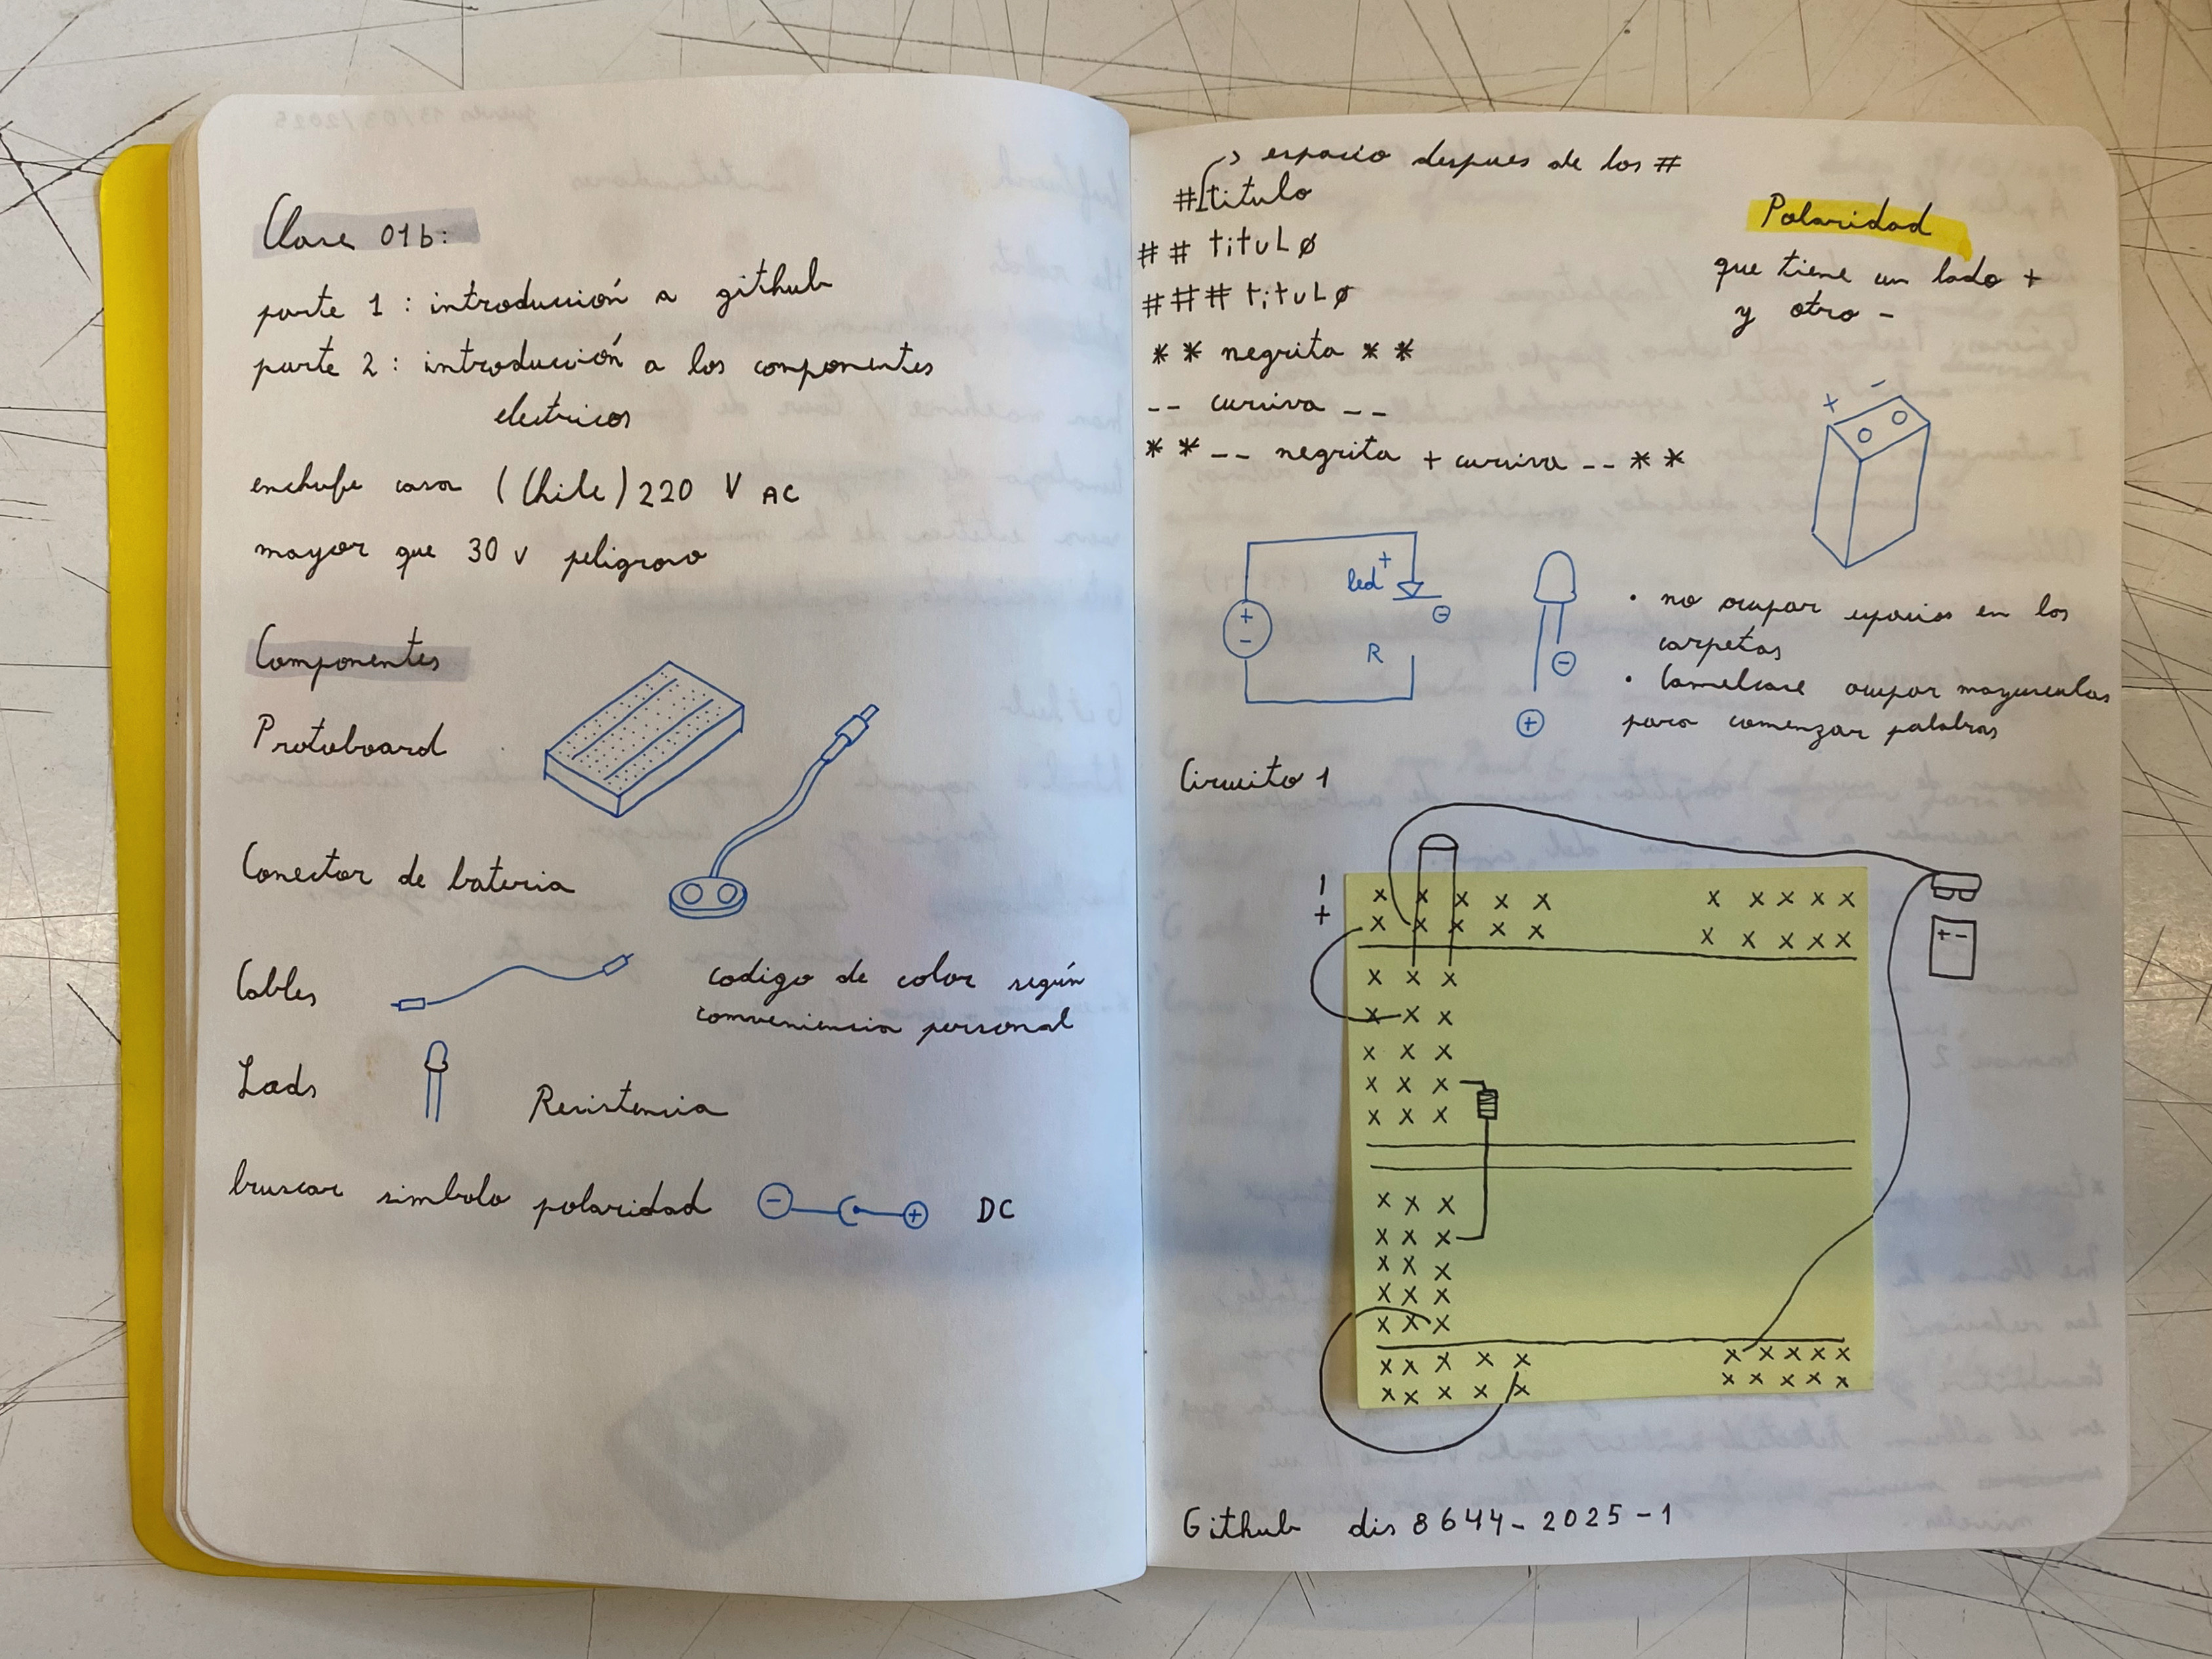 Clase 01b:
parte 1 : introducción a github
parte 2 : introducción a los componentes
electricos
enchufe casa (Chile) 220 V AC
mayor que 30 v peligroso
Componentes
Protoboard
Conector de bateria
Cables
codigo de color según
conveniencia personal
Leds
Resistencia
bruscar simbolo polaridad - + DC
espacio despues de los #
# titulo
## tituLø
### tituLø
** negrita **
-- cursiva --
**-- negrita + cursiva --**
Polaridad
que tiene un lado +
y otro -
+ -
+ -
led + -
R
- +
• no ocupar espacios en los
carpetas
• Camelcase ocupar mayusculas
para comenzar palabras
Circuito 1
-
+
+ -
x x x x x x x x x x
x x x x x x x x x x
x x x
x x x
x x x
x x x
x x x
x x x
x x x
x x x
x x x
x x x
x x x x x x x x x x
x x x x x x x x x x
Github dis 8644-2025-1